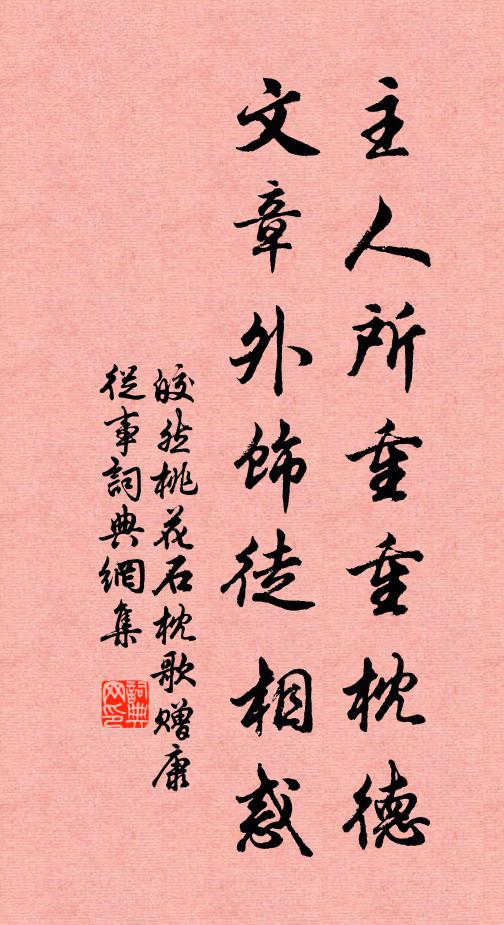 主人所重重枕德
文章外飾徒相惑
皎然桃花石枕歌赠康
從事詞典網集
詞典网印